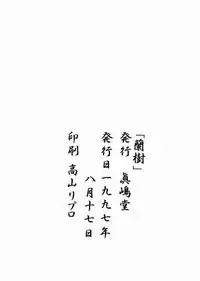 「蘭樹」
発行 眞嶋堂
発行日一九九七年
八月十七日
印刷 高山リプロ